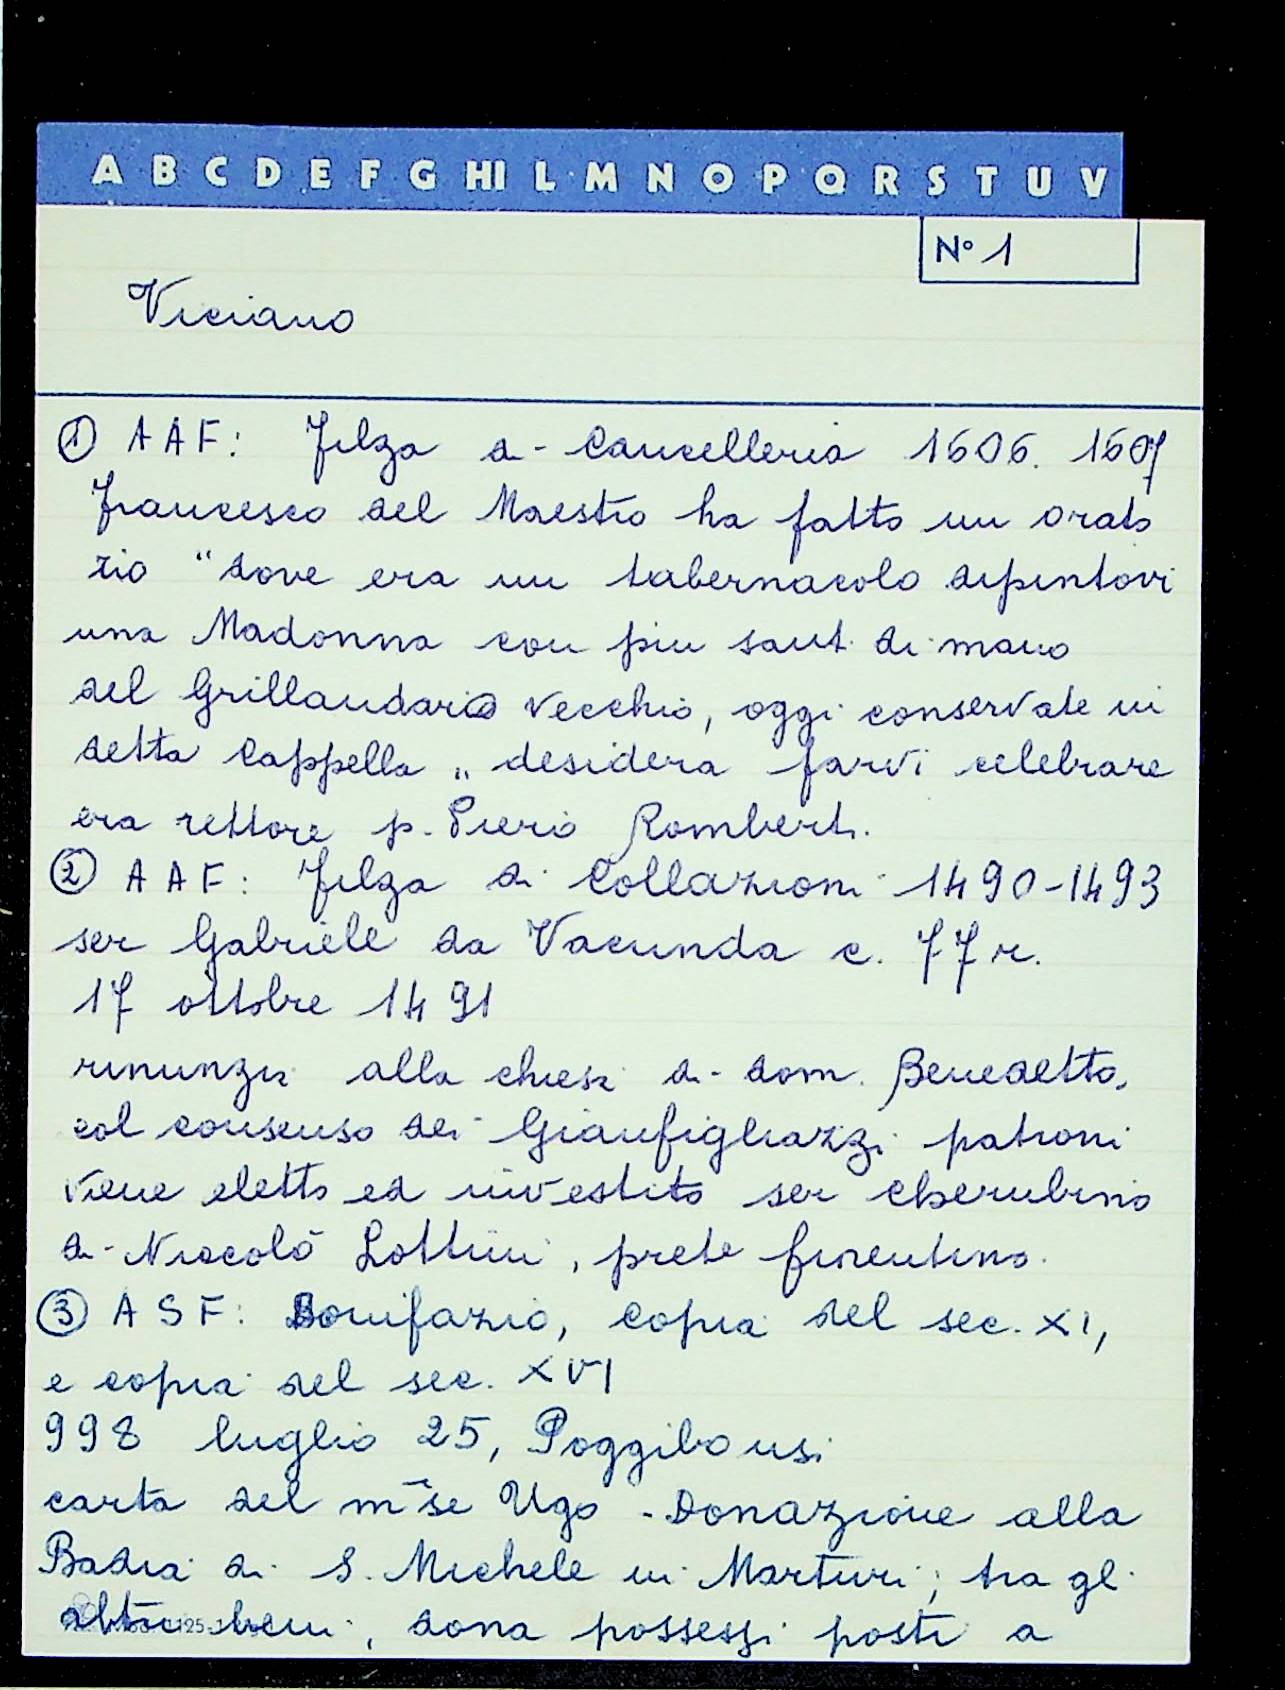 A B C D E F G HI L M N O P Q R S T U V
N° 1
Viciano
① AAF: Filza di Cancelleria 1606. 1607
Francesco del Maestro ha fatto un orato
rio "dove era un tabernacolo dipintovi
una Madonna con piu santi di mano
del Grillandario vecchio, oggi conservate in
detta Cappella „ desidera farvi celebrare
era rettore p. Piero Romberti.
② AAF: Filza di Collazioni 1490-1493
ser Gabriele da Vacunda c. 77 r.
17 ottobre 1491
rinunzia alla chiesa di dom. Benedetto,
col consenso dei Gianfigliazzi patroni
viene eletto ed investito ser Cherubino
di Niccolò Lottini, prete fiorentino.
③ ASF: Bonifazio, copia del sec. XI,
e copia del sec. XVI
998 luglio 25, Poggibonsi
carta del m~se Ugo - Donazione alla
Badia di S. Michele in Marturi; tra gli
altri beni, dona possessi posti a